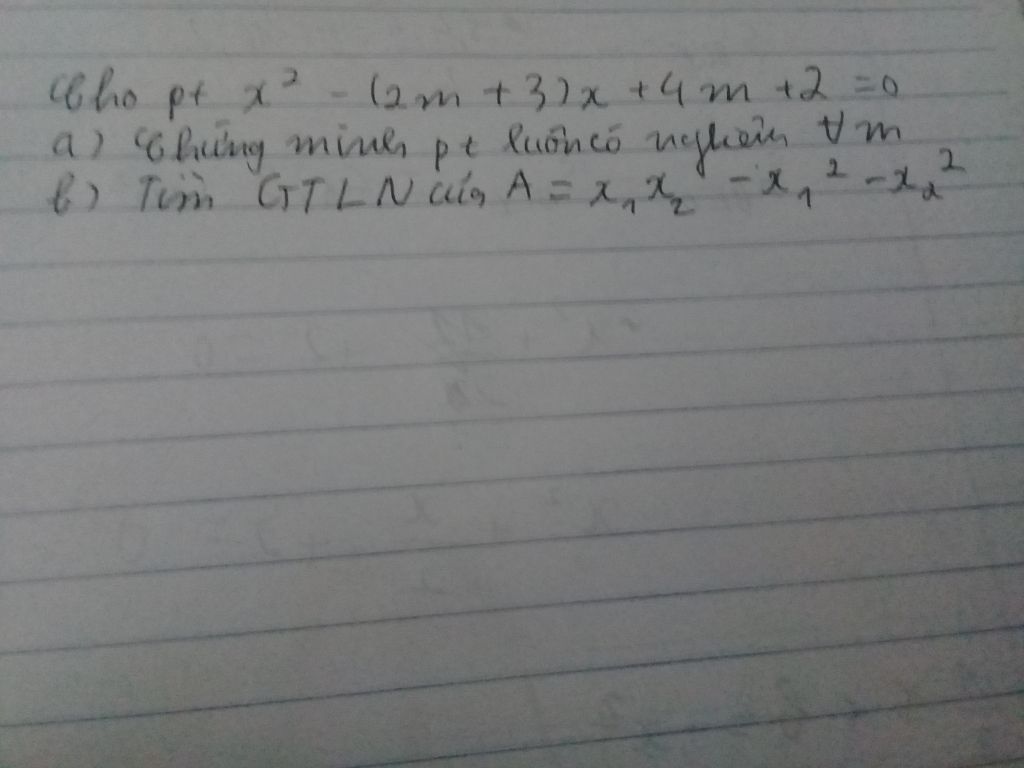 Cho pt x² - (2m + 3)x + 4m + 2 = 0
a) Chứng minh pt luôn có nghiệm ∀ m
b) Tìm GTLN của A = x₁x₂ - x₁² - x₂²